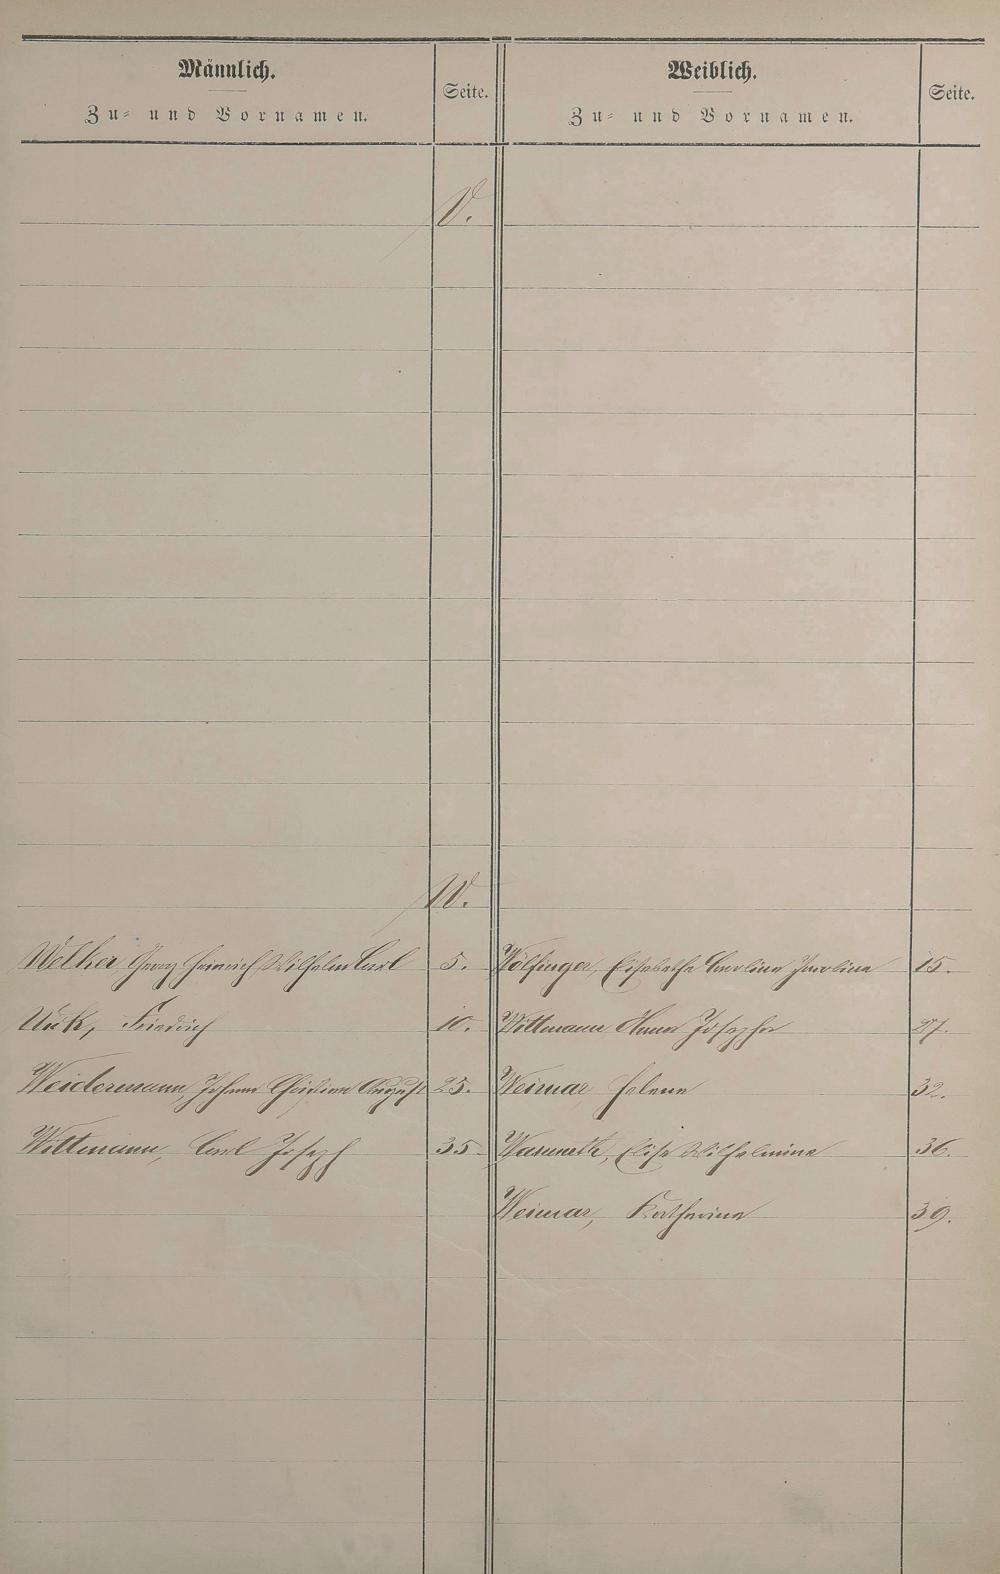 Männlich.
Zu- und Vornamen.
Seite.
Weiblich.
Zu- und Vornamen.
Seite.
V.
W.
Welker Georg Heinrich Wilhelm Carl 5. Wölfinger, Elisabetha Caroline 15.
Friedrich 10. Wittmann Anna Josepha 27.
Weidermann, Johann Christian August 25. Weimar, Helene 32.
Wittmann, Carl Joseph 35 Wasmuth, Elise Wilhelmine 36.
Weimar, Katharina 39.